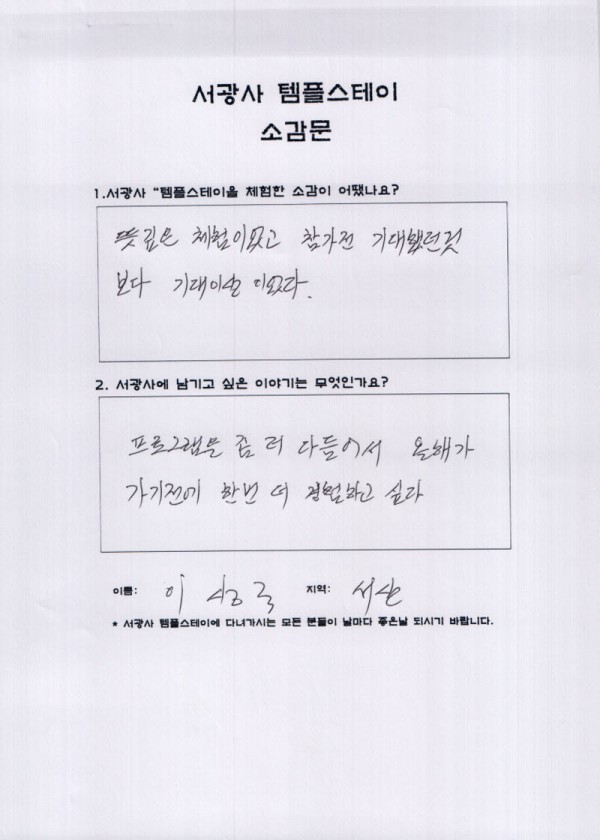 서광사 템플스테이
소감문
1.서광사 "템플스테이을 체험한 소감이 어땠나요?
뜻깊은 체험이었고 참가전 기대했던것
보다 기대이상 이었다.
2. 서광사에 남기고 싶은 이야기는 무엇인가요?
프로그램을 좀 더 다듬어서 올해가
가기전에 한번 더 경험하고 싶다
이름: 이 지역: 서산
* 서광사 템플스테이에 다녀가시는 모든 분들이 날마다 좋은날 되시기 바랍니다.